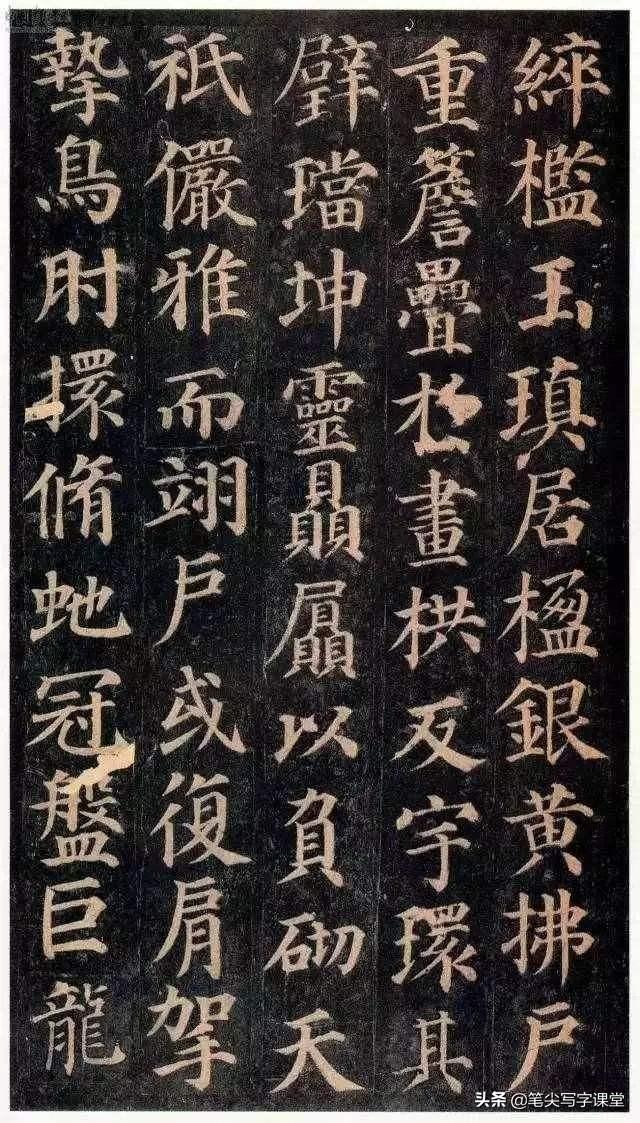 綷檻玉瑱居楹銀黃拂戶
重簷疊於畫栱反宇環其
璧璫坤靈贔屭以負砌天
祇儼雅而翊戶或復肩挐
摯鳥肘擐脩虵冠盤巨龍
头条 @笔尖写字课堂